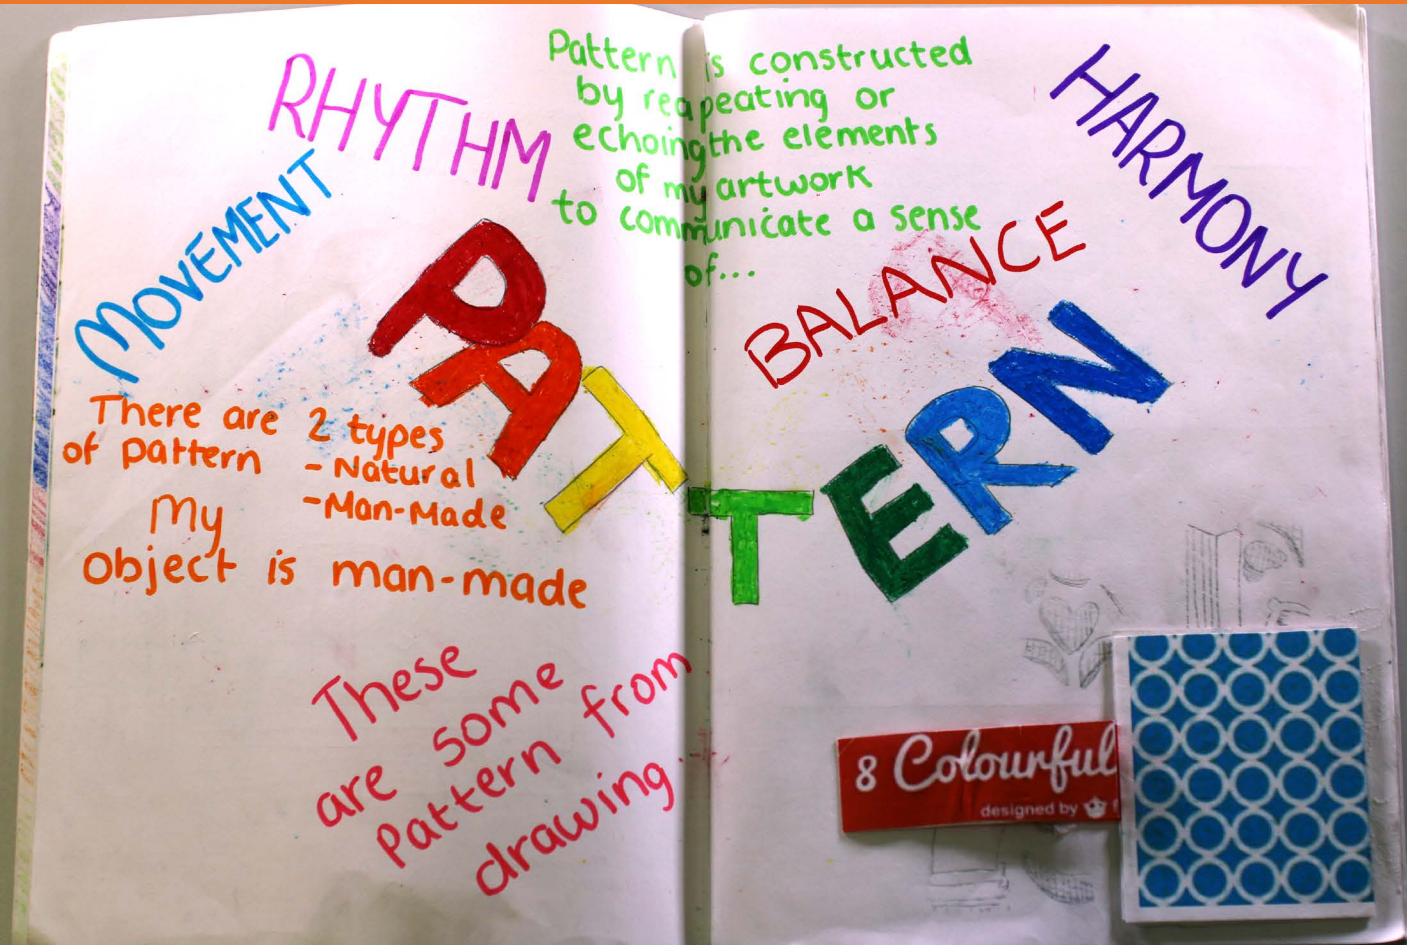 RHYTHM
MOVEMENT
Pattern is constructed
by reapeating or
echoing the elements
of my artwork
to communicate a sense
of...
HARMONY
BALANCE
PATTERN
There are 2 types
of pattern - Natural
- Man-Made
My
object is man-made
These
are some
Pattern from
drawing...
8 Colourful
designed by